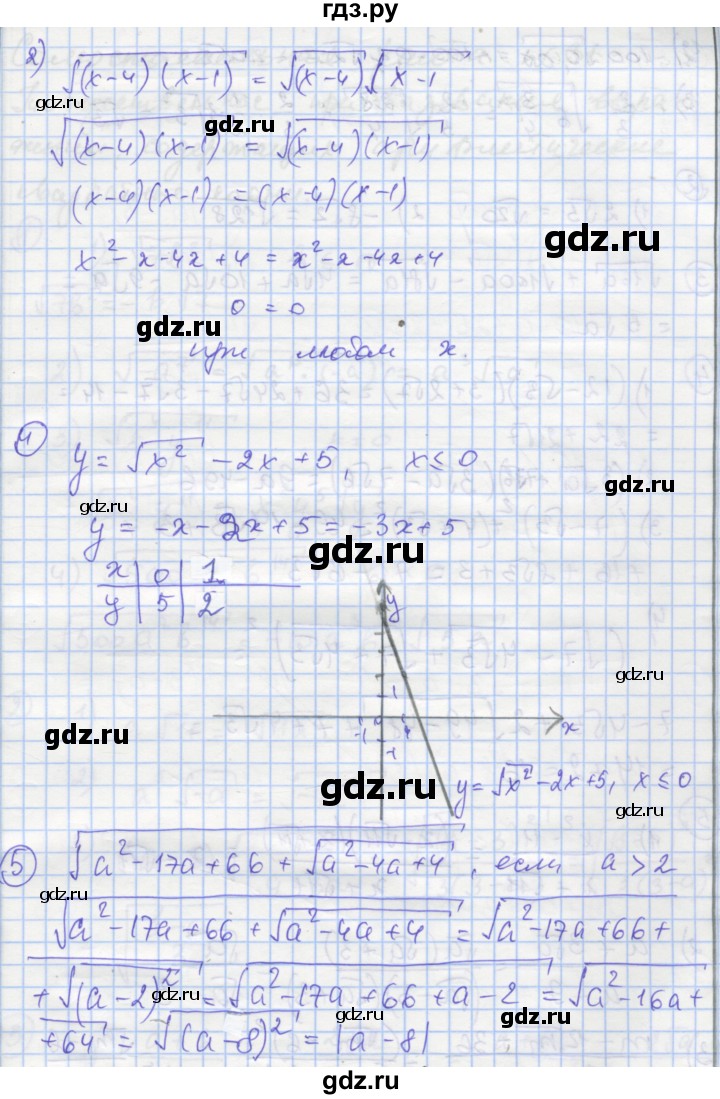 гдз.ру
2) √((x-4)(x-1)) = √(x-4) √(x-1)
√((x-4)(x-1)) = √((x-4)(x-1))
(x-4)(x-1) = (x-4)(x-1)
gdz.ru
x² - x - 4x + 4 = x² - x - 4x + 4
0 = 0
gdz.ru
при любом x.
4
y = √x² - 2x + 5, x ≤ 0
gdz.ru
gdz.ru
y = -x - 2x + 5 = -3x + 5
gdz.ru
x | 0 | 1
y | 5 | 2
y
gdz.ru
1
gdz.ru
-1 1 x
-1
gdz.ru
y = √x² - 2x + 5, x ≤ 0
gdz.ru
5 √(a² - 17a + 66 + √(a² - 4a + 4)), если a > 2
gdz.ru
√(a² - 17a + 66 + √(a² - 4a + 4)) = √(a² - 17a + 66 +
+ √(a-2)²) = √(a² - 17a + 66 + a - 2) = √(a² - 16a +
gdz.ru
gdz.ru
+ 64) = √(a-8)² = |a-8|
gdz.ru
gdz.ru
гдз.ру